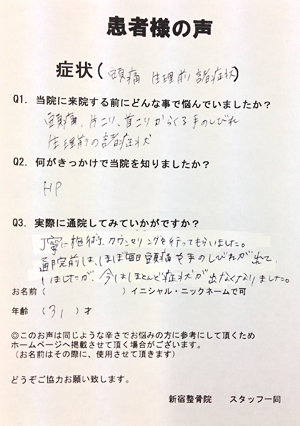 患者様の声
症状( 頭痛 生理前諸症状 )
Q1. 当院に来院する前にどんな事で悩んでいましたか?
頭痛、肩こり、首こりからくる手のしびれ
生理前の諸症状
Q2. 何がきっかけで当院を知りましたか?
HP
Q3. 実際に通院してみていかがですか?
丁寧に施術、カウンセリングを行ってもらいました。
通院前は、ほぼ毎日頭痛や手のしびれが出て
いましたが、今はほとんど症状が出なくなりました。
お名前( )イニシャル・ニックネームで可
年齢 ( 31 )才
◎このお声は同じような辛さでお悩みの方に参考にして頂くため
ホームページへ掲載させて頂く場合がございます。
(お名前はその際に、使用させて頂きます)
どうぞご協力お願い致します。
新宿整骨院 スタッフ一同